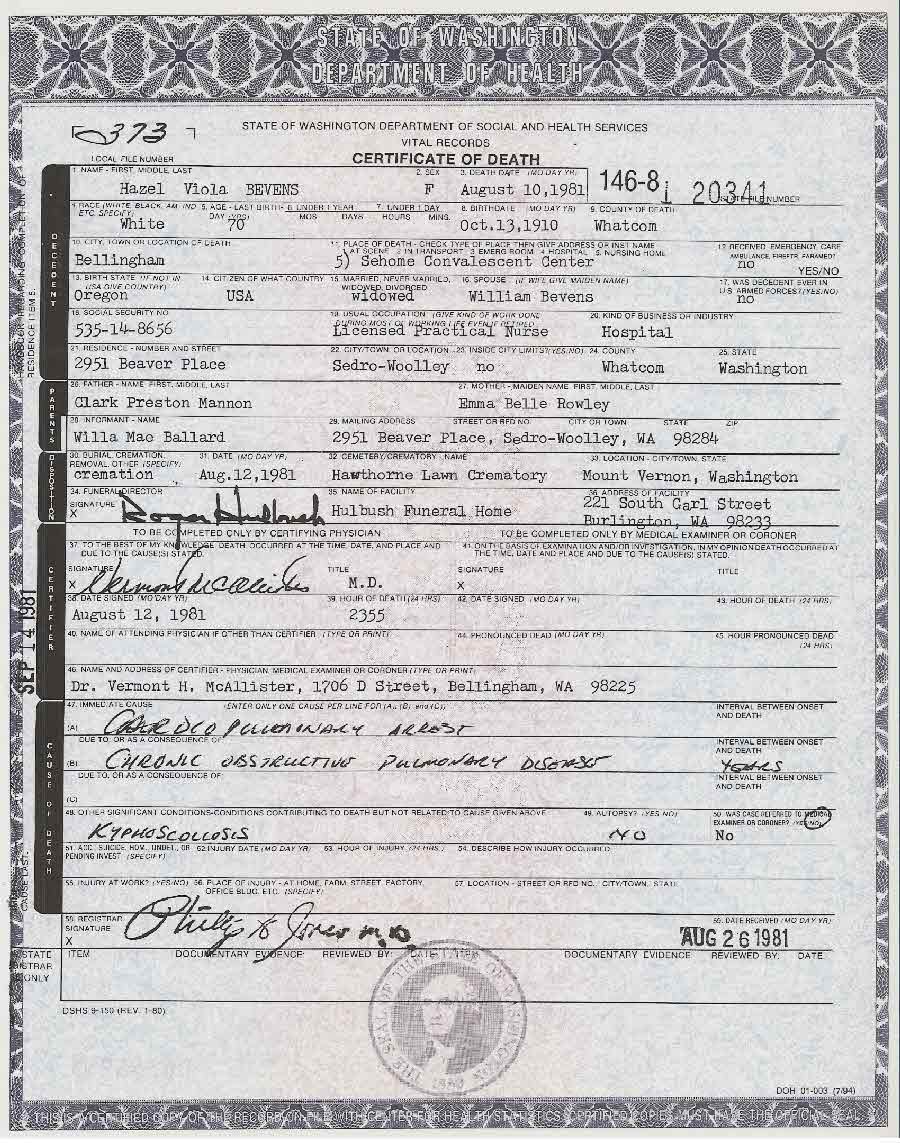 STATE OF WASHINGTON
DEPARTMENT OF HEALTH
373
STATE OF WASHINGTON DEPARTMENT OF SOCIAL AND HEALTH SERVICES
VITAL RECORDS
LOCAL FILE NUMBER
CERTIFICATE OF DEATH
146-8 20341
STATE FILE NUMBER
1. NAME - FIRST, MIDDLE, LAST 2. SEX 3. DEATH DATE (MO DAY YR)
Hazel Viola BEVENS F August 10,1981
4. RACE (WHITE, BLACK, AM. IND. ETC. SPECIFY) 5. AGE - LAST BIRTHDAY (YRS) 6. UNDER 1 YEAR MOS DAYS 7. UNDER 1 DAY HOURS MINS. 8. BIRTHDATE (MO DAY YR) 9. COUNTY OF DEATH
White 70 Oct.13,1910 Whatcom
10. CITY, TOWN OR LOCATION OF DEATH 11. PLACE OF DEATH - CHECK TYPE OF PLACE THEN GIVE ADDRESS OR INST NAME
1. AT SCENE 2. IN TRANSPORT 3. EMERG ROOM 4. HOSPITAL 5. NURSING HOME
12. RECEIVED EMERGENCY CARE
Bellingham 5) Sehome Convalescent Center no
YES/NO
13. BIRTH STATE (IF NOT IN USA GIVE COUNTRY) 14. CITIZEN OF WHAT COUNTRY 15. MARRIED, NEVER MARRIED, WIDOWED, DIVORCED 16. SPOUSE (IF WIFE GIVE MAIDEN NAME) 17. WAS DECEDENT EVER IN U.S ARMED FORCES? (YES/NO)
Oregon USA widowed William Bevens no
18. SOCIAL SECURITY NO 19. USUAL OCCUPATION (GIVE KIND OF WORK DONE DURING MOST OF WORKING LIFE EVEN IF RETIRED) 20. KIND OF BUSINESS OR INDUSTRY
535-14-8656 Licensed Practical Nurse Hospital
21. RESIDENCE - NUMBER AND STREET 22. CITY/TOWN, OR LOCATION 23. INSIDE CITY LIMITS? (YES/NO) 24. COUNTY 25. STATE
2951 Beaver Place Sedro-Woolley no Whatcom Washington
26. FATHER - NAME FIRST, MIDDLE, LAST 27. MOTHER - MAIDEN NAME, FIRST, MIDDLE, LAST
Clark Preston Mannon Emma Belle Rowley
28. INFORMANT - NAME 29. MAILING ADDRESS STREET OR RFD NO. CITY OR TOWN STATE ZIP
Willa Mae Ballard 2951 Beaver Place, Sedro-Woolley, WA 98284
30. BURIAL, CREMATION, REMOVAL, OTHER (SPECIFY) 31. DATE (MO DAY YR) 32. CEMETERY/CREMATORY - NAME 33. LOCATION - CITY/TOWN, STATE
cremation Aug.12,1981 Hawthorne Lawn Crematory Mount Vernon, Washington
34. FUNERAL DIRECTOR 35 NAME OF FACILITY 36. ADDRESS OF FACILITY
SIGNATURE X Roger Hulbush Hulbush Funeral Home 221 South Garl Street
Burlington, WA 98233
TO BE COMPLETED ONLY BY CERTIFYING PHYSICIAN TO BE COMPLETED ONLY BY MEDICAL EXAMINER OR CORONER
37. TO THE BEST OF MY KNOWLEDGE, DEATH OCCURRED AT THE TIME, DATE, AND PLACE AND 41. ON THE BASIS OF EXAMINATION AND/OR INVESTIGATION, IN MY OPINION DEATH OCCURRED AT
DUE TO THE CAUSE(S) STATED. THE TIME, DATE AND PLACE AND DUE TO THE CAUSE(S) STATED.
SIGNATURE TITLE SIGNATURE TITLE
X Vermont McAllister M.D. X
38. DATE SIGNED (MO DAY YR) 39. HOUR OF DEATH (24 HRS) 42. DATE SIGNED (MO DAY YR) 43. HOUR OF DEATH (24 HRS.)
August 12, 1981 2355
40. NAME OF ATTENDING PHYSICIAN IF OTHER THAN CERTIFIER (TYPE OR PRINT) 44. PRONOUNCED DEAD (MO DAY YR) 45. HOUR PRONOUNCED DEAD (24 HRS.)
46. NAME AND ADDRESS OF CERTIFIER - PHYSICIAN, MEDICAL EXAMINER OR CORONER (TYPE OR PRINT)
Dr. Vermont H. McAllister, 1706 D Street, Bellingham, WA 98225
47. IMMEDIATE CAUSE (ENTER ONLY ONE CAUSE PER LINE FOR (A), (B) and (C)) INTERVAL BETWEEN ONSET AND DEATH
(A) CARDIO PULMONARY ARREST
DUE TO, OR AS A CONSEQUENCE OF INTERVAL BETWEEN ONSET AND DEATH
(B) CHRONIC OBSTRUCTIVE PULMONARY DISEASE YEARS
DUE TO, OR AS A CONSEQUENCE OF: INTERVAL BETWEEN ONSET AND DEATH
(C)
48. OTHER SIGNIFICANT CONDITIONS-CONDITIONS CONTRIBUTING TO DEATH BUT NOT RELATED TO CAUSE GIVEN ABOVE 49. AUTOPSY? (YES NO) 50. WAS CASE REFERRED TO MEDICAL EXAMINER OR CORONER? (YES/NO)
KYPHOSCOLIOSIS NO No
51. ACC., SUICIDE, HOM., UNDET., OR PENDING INVEST (SPECIFY) 52. INJURY DATE (MO DAY YR) 53. HOUR OF INJURY (24 HRS.) 54. DESCRIBE HOW INJURY OCCURRED
55. INJURY AT WORK? (YES/NO) 56. PLACE OF INJURY - AT HOME, FARM, STREET, FACTORY, OFFICE BLDG, ETC. (SPECIFY) 57. LOCATION - STREET OR RFD NO., CITY/TOWN, STATE
58. REGISTRAR SIGNATURE 59. DATE RECEIVED (MO DAY YR)
X Philip H Jones M.D. AUG 26 1981
ITEM DOCUMENTARY EVIDENCE: REVIEWED BY: DATE ITEM DOCUMENTARY EVIDENCE REVIEWED BY: DATE
STATE
REGISTRAR
ONLY
DSHS 9-150 (REV. 1-80)
DECEDENT
PARENTS
DISPOSITION
CERTIFIER
CAUSE OF DEATH
RESIDENCE ITEM 5.
SEP 14 1981
THE SEAL OF THE STATE OF WASHINGTON
1889
DOH 01-003 (7/94)
THIS IS A CERTIFIED COPY OF THE RECORD ON FILE WITH CENTER FOR HEALTH STATISTICS. CERTIFIED COPIES MUST HAVE THE OFFICIAL SEAL